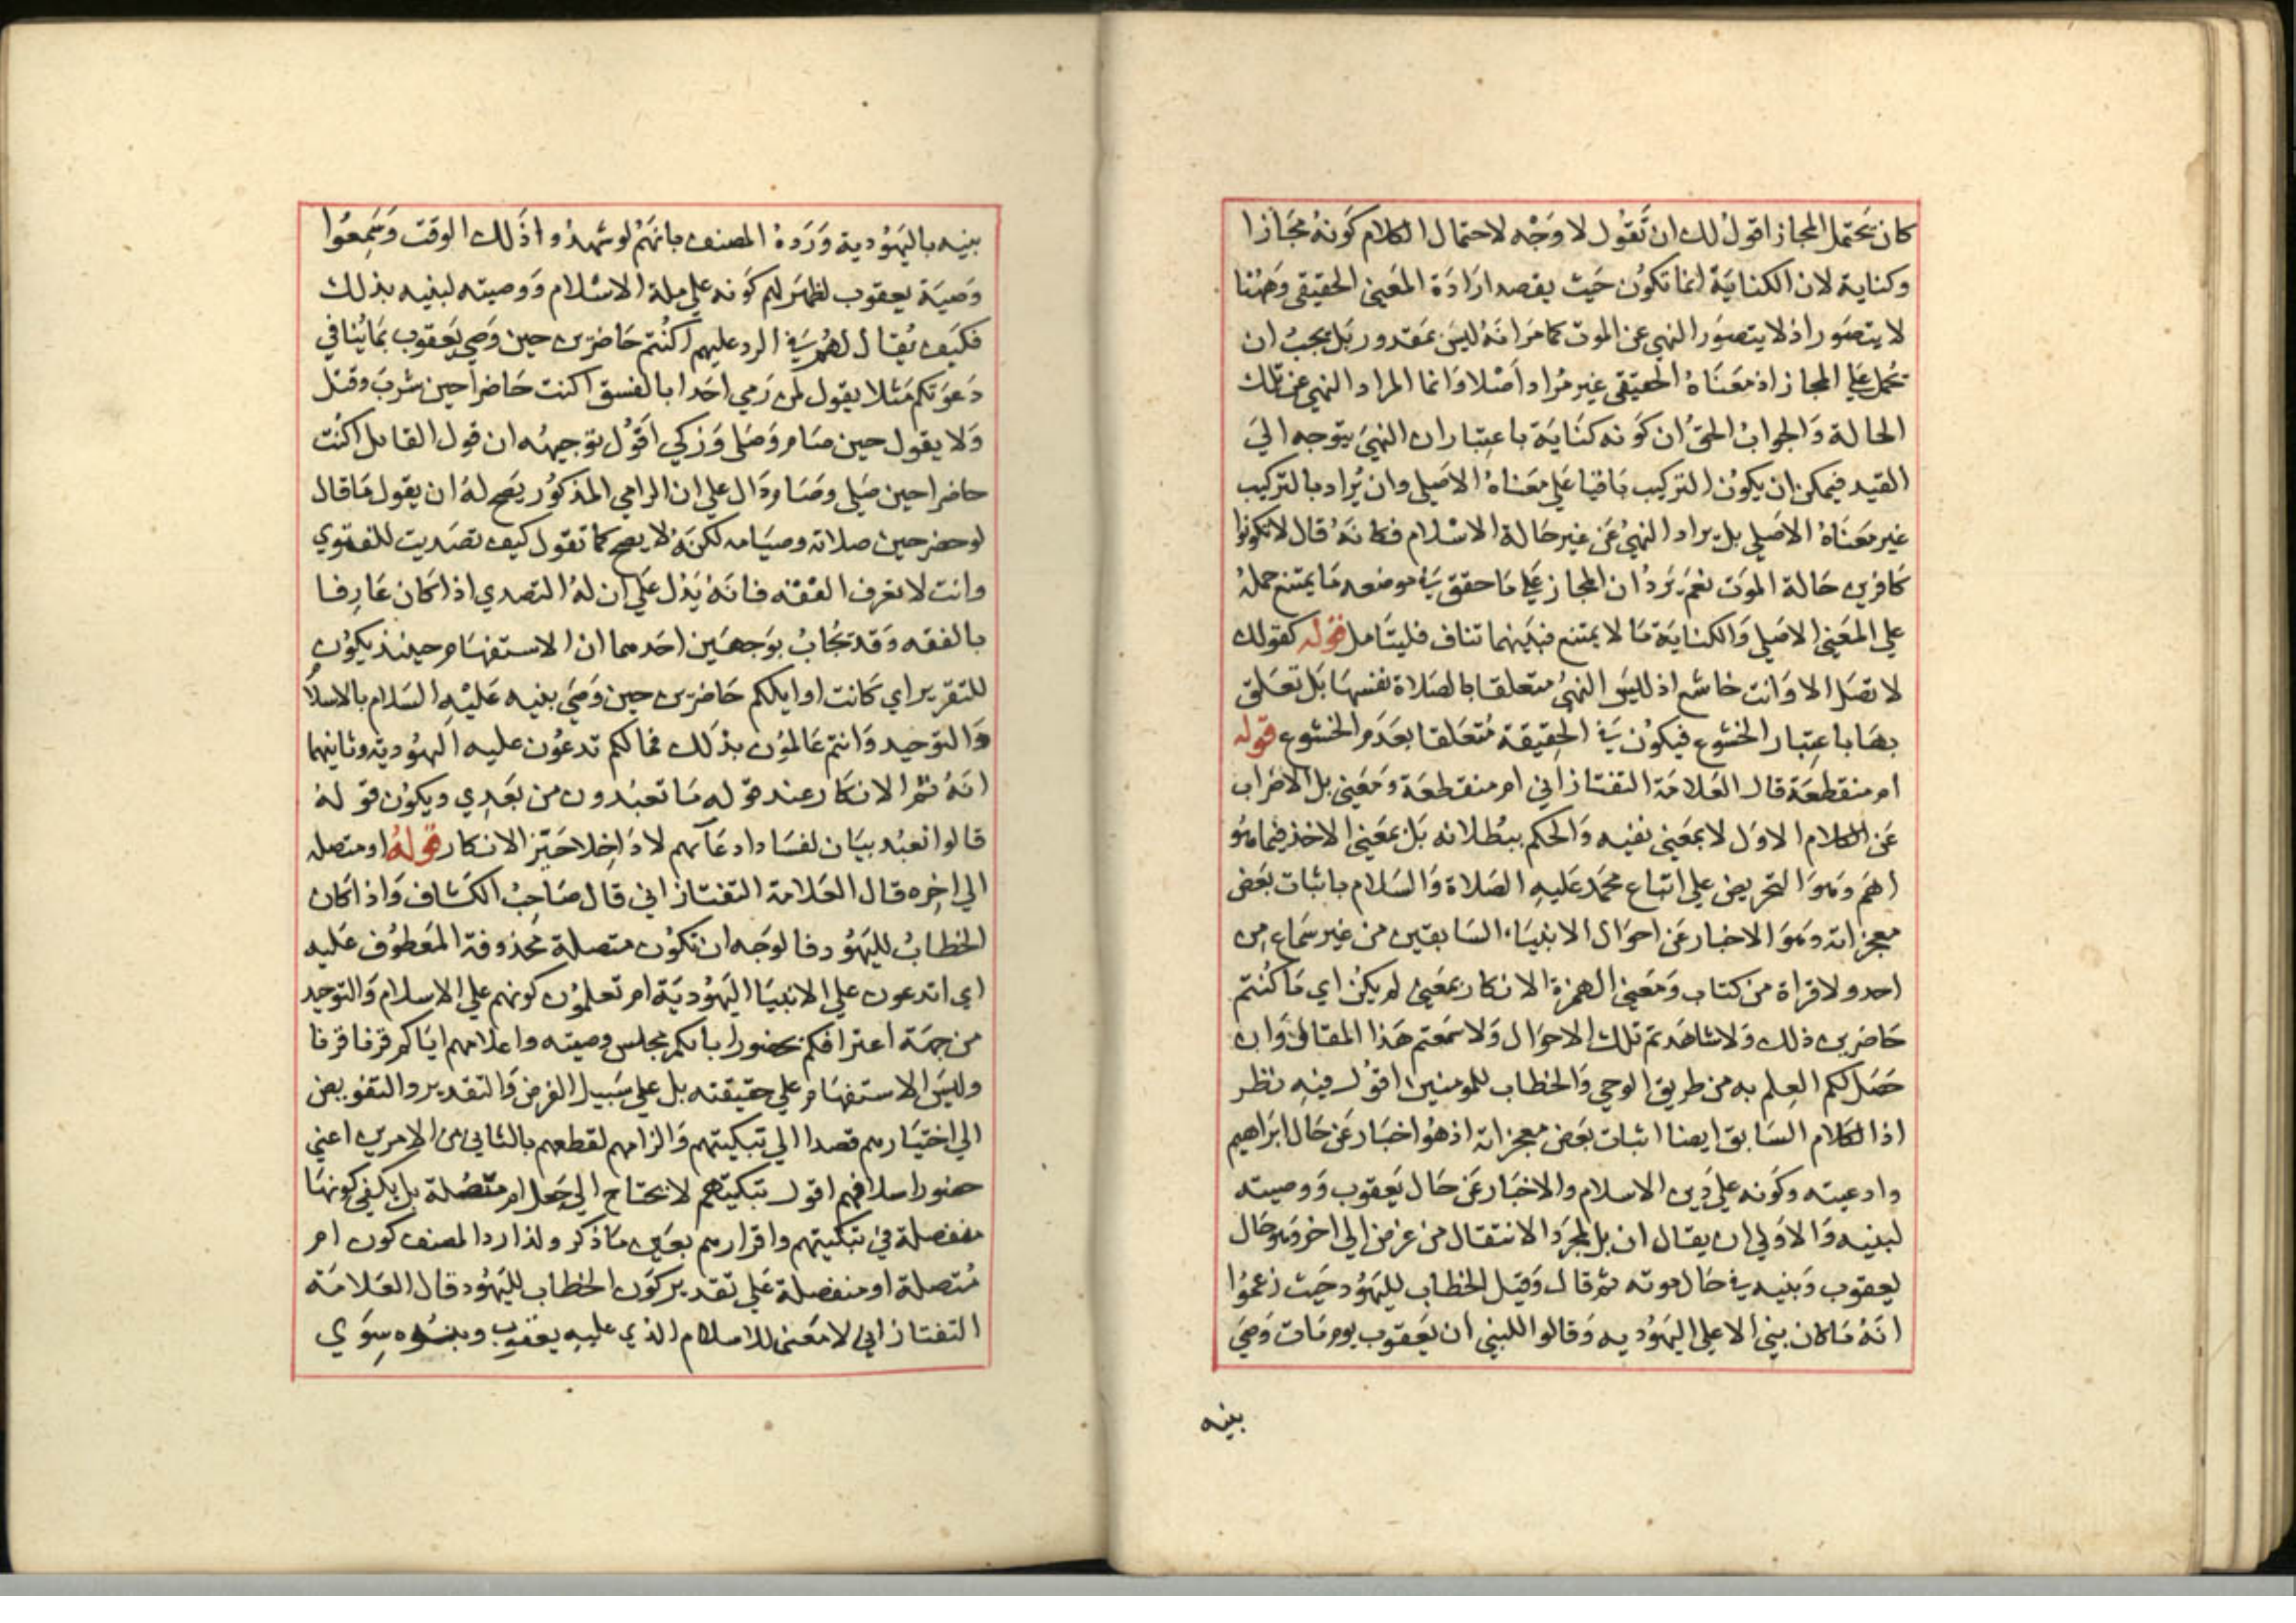 كان يحتمل المجاز اقول لك ان تقول لا وجه لاحتمال الكلام كونه مجازا
وكناية لان الكناية انما تكون حيث يقصد ارادة المعنى الحقيقى وههنا
لا يتصور اذ لا يتصور النهى عن الموت كما مر انه ليس بمقدور بل يجب ان
تحمل على المجاز اذ معناه الحقيقى غير مراد اصلا وانما المراد النهى عن تلك
الحالة والجواب الحق ان كونه كناية باعتبار ان النهى يتوجه الى
القيد فيمكن ان يكون التركيب باقيا على معناه الاصلى وان يراد بالتركيب
غير معناه الاصلى بل يراد النهى عن غير حالة الاسلام فكانه قال لا تكونوا
كافرين حالة الموت نعم يرد ان المجاز على ما حقق فى موضعه ما يمتنع حمله
على المعنى الاصلى والكناية ما لا يمتنع فبينهما تناف فليتامل قوله كقولك
لا تصل الا وانت خاشع اذ ليس النهى متعلقا بالصلاة نفسها بل تعلق
بها باعتبار الخشوع فيكون فى الحقيقة متعلقا بعدم الخشوع قوله
ام منقطعة قال العلامة التفتازانى ام منقطعة ومعنى بل الاضراب
عن الكلام الاول لا بمعنى نفيه والحكم ببطلانه بل بمعنى الاخذ فيما هو
اهم وهو التحريض على اتباع محمد عليه الصلاة والسلام باثبات بعض
معجزاته وهو الاخبار عن احوال الانبياء السابقين من غير سماع من
احد ولا قراة من كتاب ومعنى الهمزة الانكار بمعنى لم يكن اى ما كنتم
حاضرين ذلك ولا شاهدتم تلك الاحوال ولا سمعتم هذا المقال وان
حصل لكم العلم به من طريق الوحى والخطاب للمومنين اقول فيه نظر
اذ الكلام السابق ايضا اثبات بعض معجزاته اذ هو اخبار عن حال ابراهيم
وادعيته وكونه على دين الاسلام والاخبار عن حال يعقوب ووصيته
لبنيه والاولى ان يقال ان بل لمجرد الانتقال من غرض الى اخر وهو حال
يعقوب وبنيه فى حال موته ثم قال وقيل الخطاب لليهود حيث زعموا
انه ما كان بنى الا على اليهودية وقالوا للبنى ان يعقوب يوم مات وصى
بنيه
بنيه باليهودية ورده المصنف بانهم لو شهدوا ذلك الوقت وسمعوا
وصية يعقوب لظهر لهم كونه على ملة الاسلام ووصيته لبنيه بذلك
فكيف يقال لهم فى الرد عليهم اكنتم حاضرين حين وصى يعقوب بما ينافى
دعوتكم مثلا يقول لمن رمى احدا بالفسق اكنت حاضرا حين شرب وقتل
ولا يقول حين صام وصلى وزكى اقول توجيهه ان قول القايل اكنت
حاضرا حين صلى وصام دال على ان الرامى المذكور يصح له ان يقول ما قال
لو حضر حين صلاته وصيامه لكنه لا يصح كما تقول كيف تصديت للفتوى
وانت لا تعرف الفقه فانه يدل على ان له التصدى اذا كان عارفا
بالفقه وقد تجاب بوجهين احدهما ان الاستفهام حينئذ يكون
للتقرير اى كانت اوايلكم حاضرين حين وصى بنيه عليه السلام بالاسلام
والتوحيد وانتم عالمون بذلك فما لكم تدعون عليه اليهودية وثانيهما
انه تم الانكار عند قوله ما تعبدون من بعدى ويكون قوله
قالوا نعبد بيان لفساد ادعآئهم لا داخلا حيز الانكار قوله او متصلة
الى اخره قال العلامة التفتازانى قال صاحب الكشاف واذا كان
الخطاب لليهود فالوجه ان تكون متصلة محذوفة المعطوف عليه
اى اتدعون على الانبيا اليهودية ام تعلمون كونهم على الاسلام والتوحيد
من جهة اعترافكم بحضور ابائكم مجلس وصيته واعلامهم اياكم قرنا قرنا
وليس الاستفهام على حقيقته بل على سبيل الفرض والتقدير والتفويض
الى اختيارهم قصدا الى تبكيتهم والزامهم لقطعهم بالثانى من الامرين اعنى
حضور اسلافهم اقول تبكيتهم لا يحتاج الى جعل ام متصلة بل يكفى كونها
منفصلة فى تبكيتهم واقرارهم بعين ما ذكر ولذا رد المصنف كون ام
متصلة او منفصلة على تقدير كون الخطاب لليهود قال العلامة
التفتازانى لا معنى للاسلام الذى عليه يعقوب وبنوه سوى